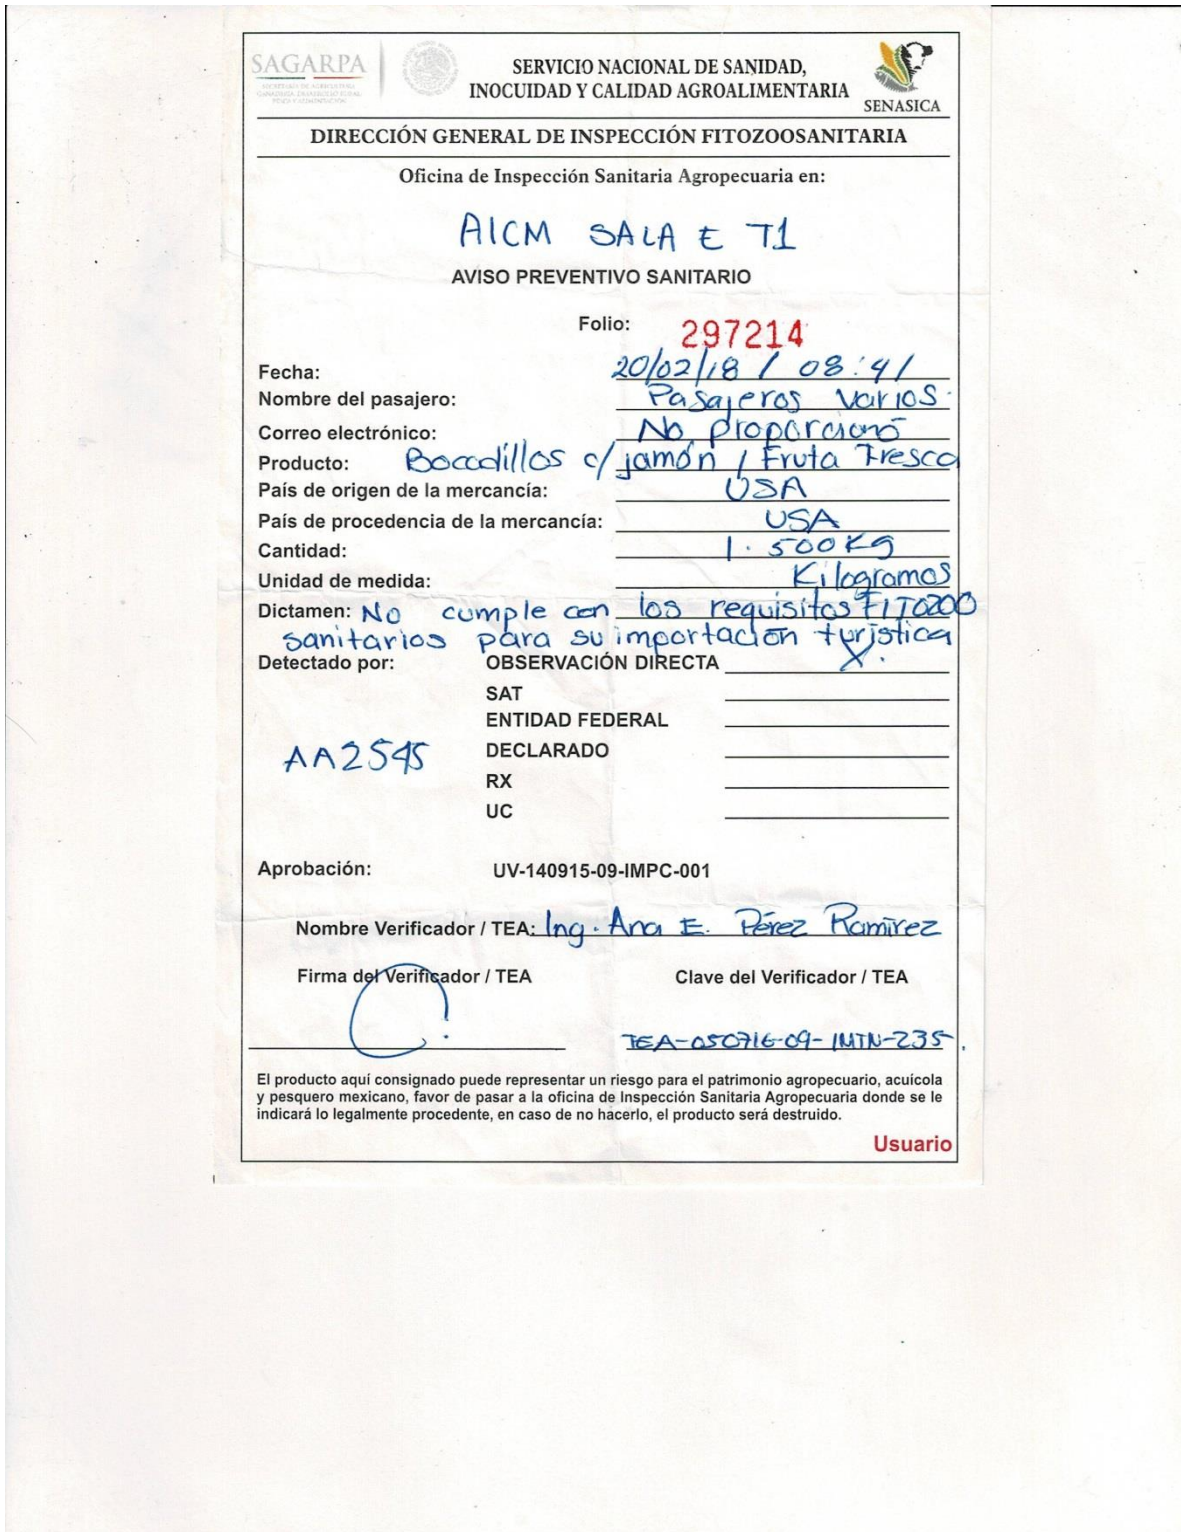 SAGARPA
SERVICIO NACIONAL DE SANIDAD,
INOCUIDAD Y CALIDAD AGROALIMENTARIA
SENASICA
DIRECCIÓN GENERAL DE INSPECCIÓN FITOZOOSANITARIA
Oficina de Inspección Sanitaria Agropecuaria en:
AICM SALA E T1
AVISO PREVENTIVO SANITARIO
Folio: 297214
Fecha: 20/02/18 / 08:41
Nombre del pasajero: Pasajeros Varios.
Correo electrónico: No proporcionó
Producto: Bocadillos c/ jamón / Fruta Fresca
País de origen de la mercancía: USA
País de procedencia de la mercancía: USA
Cantidad: 1.500 Kg
Unidad de medida: Kilogramos
Dictamen: No cumple con los requisitos FITOZOO
sanitarios para su importación turística
Detectado por: OBSERVACIÓN DIRECTA X.
SAT
ENTIDAD FEDERAL
AA2545 DECLARADO
RX
UC
Aprobación: UV-140915-09-IMPC-001
Nombre Verificador / TEA: Ing. Ana E. Pérez Ramírez
Firma del Verificador / TEA Clave del Verificador / TEA
TEA-050716-09-IMTN-235.
El producto aquí consignado puede representar un riesgo para el patrimonio agropecuario, acuícola
y pesquero mexicano, favor de pasar a la oficina de Inspección Sanitaria Agropecuaria donde se le
indicará lo legalmente procedente, en caso de no hacerlo, el producto será destruido.
Usuario